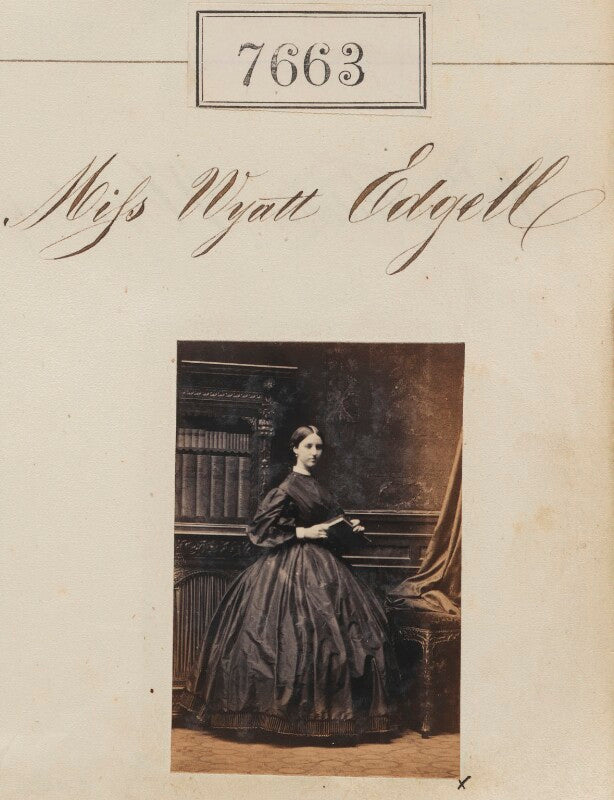 7663
Miss Wyatt Edgell
x